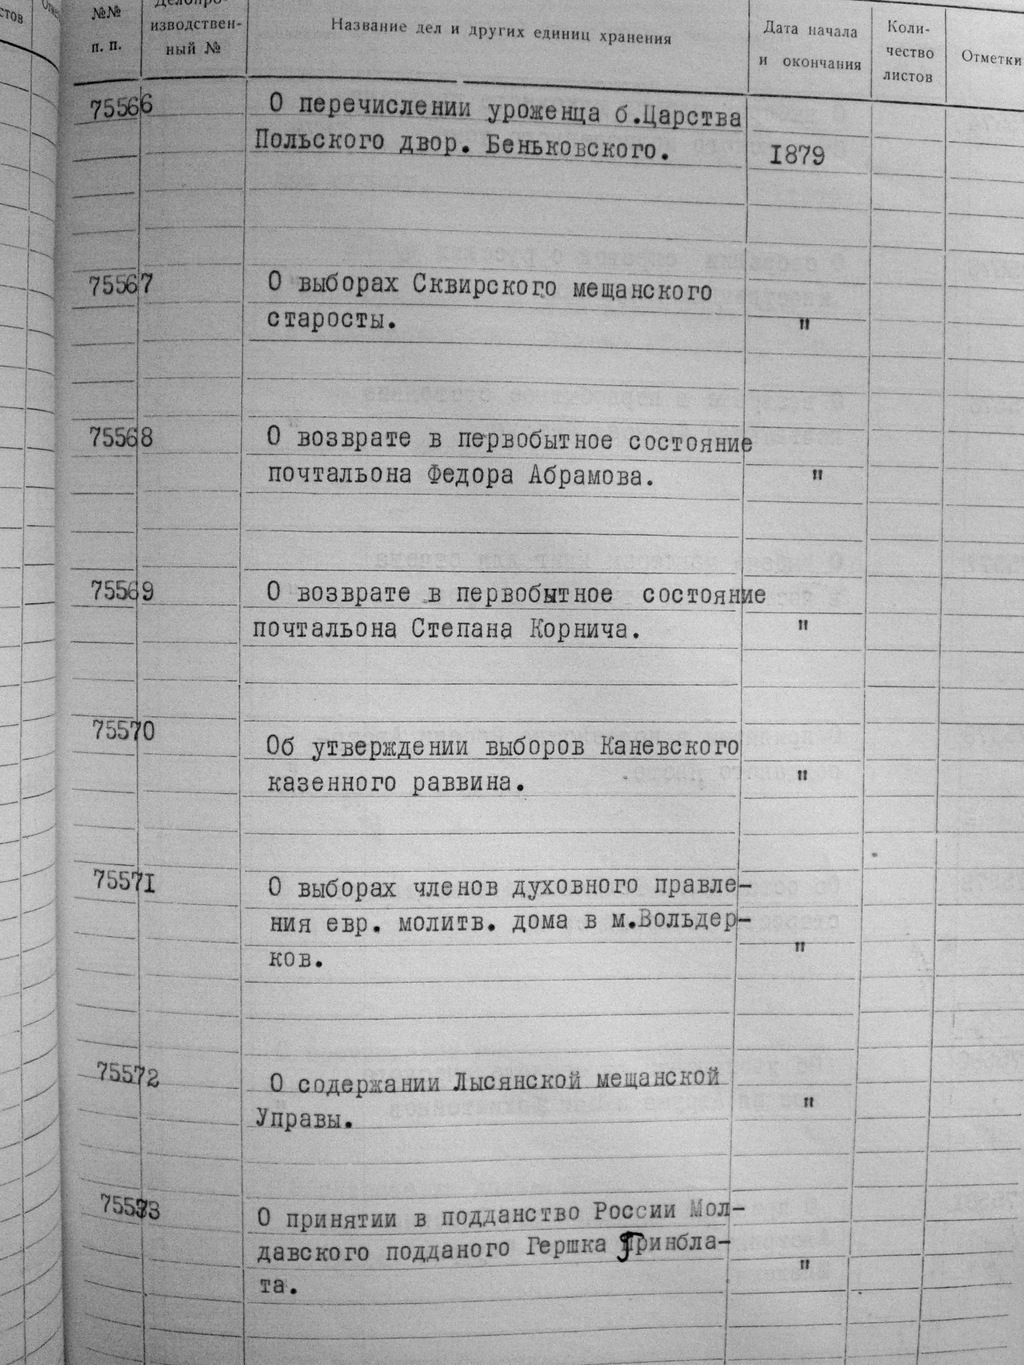 стов
№№
п. п.
Делопро-
изводствен-
ный №
Название дел и других единиц хранения
Дата начала
и окончания
Коли-
чество
листов
Отметки
75566
О перечислении уроженца б.Царства
Польского двор. Беньковского.
1879
75567
О выборах Сквирского мещанского
старосты.
"
75568
О возврате в первобытное состояние
почтальона Федора Абрамова.
"
75569
О возврате в первобытное состояние
почтальона Степана Корнича.
"
75570
Об утверждении выборов Каневского
казенного раввина.
"
75571
О выборах членов духовного правле-
ния евр. молитв. дома в м.Вольдер-
ков.
"
75572
О содержании Лысянской мещанской
Управы.
"
75573
О принятии в подданство России Мол-
давского подданого Гершка Гринбла-
та.
"